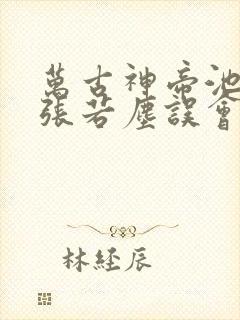 萬古神帝池
張若塵誤會
林經辰